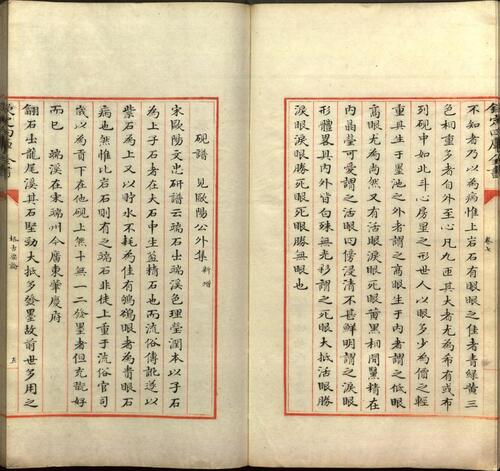 欽定四庫全書
卷七
不知者乃以為病也惟上岩石有眼眼之佳者青緑黄三
色相重多者自外至心凡九匝其大者尤為希有或布
列硯中如北斗心房里之形世人以眼多少為價之輕
重其生于墨池之外者謂之高眼生于内者謂之低眼
高眼尤為尚然又有活眼淚眼死眼黄黑相間黳精在
内晶瑩可愛謂之活眼四傍浸漬不甚鮮明謂之淚眼
形體畧具内外皆白殊無光彩謂之死眼大抵活眼勝
淚眼淚眼勝死眼死眼勝無眼也
硯譜 見歐陽公外集 新增
宋歐陽文忠研譜云端石出端溪色理瑩潤本以子石
為上子石者在大石中生葢精石也而流俗傳訛遂以
紫石為上又以貯水不耗為佳有鴝鵒眼者為貴眼石
病也然惟此岩石則有之端石非徒上重于流俗官司
歳以為貢下亦在他硯上然十無一二發墨者但充翫好
而已 端溪在東端州今廣東肇慶府
歙石出龍尾溪其石堅勁大抵多發墨故前世多用之
欽定四庫全書
格古要論
五